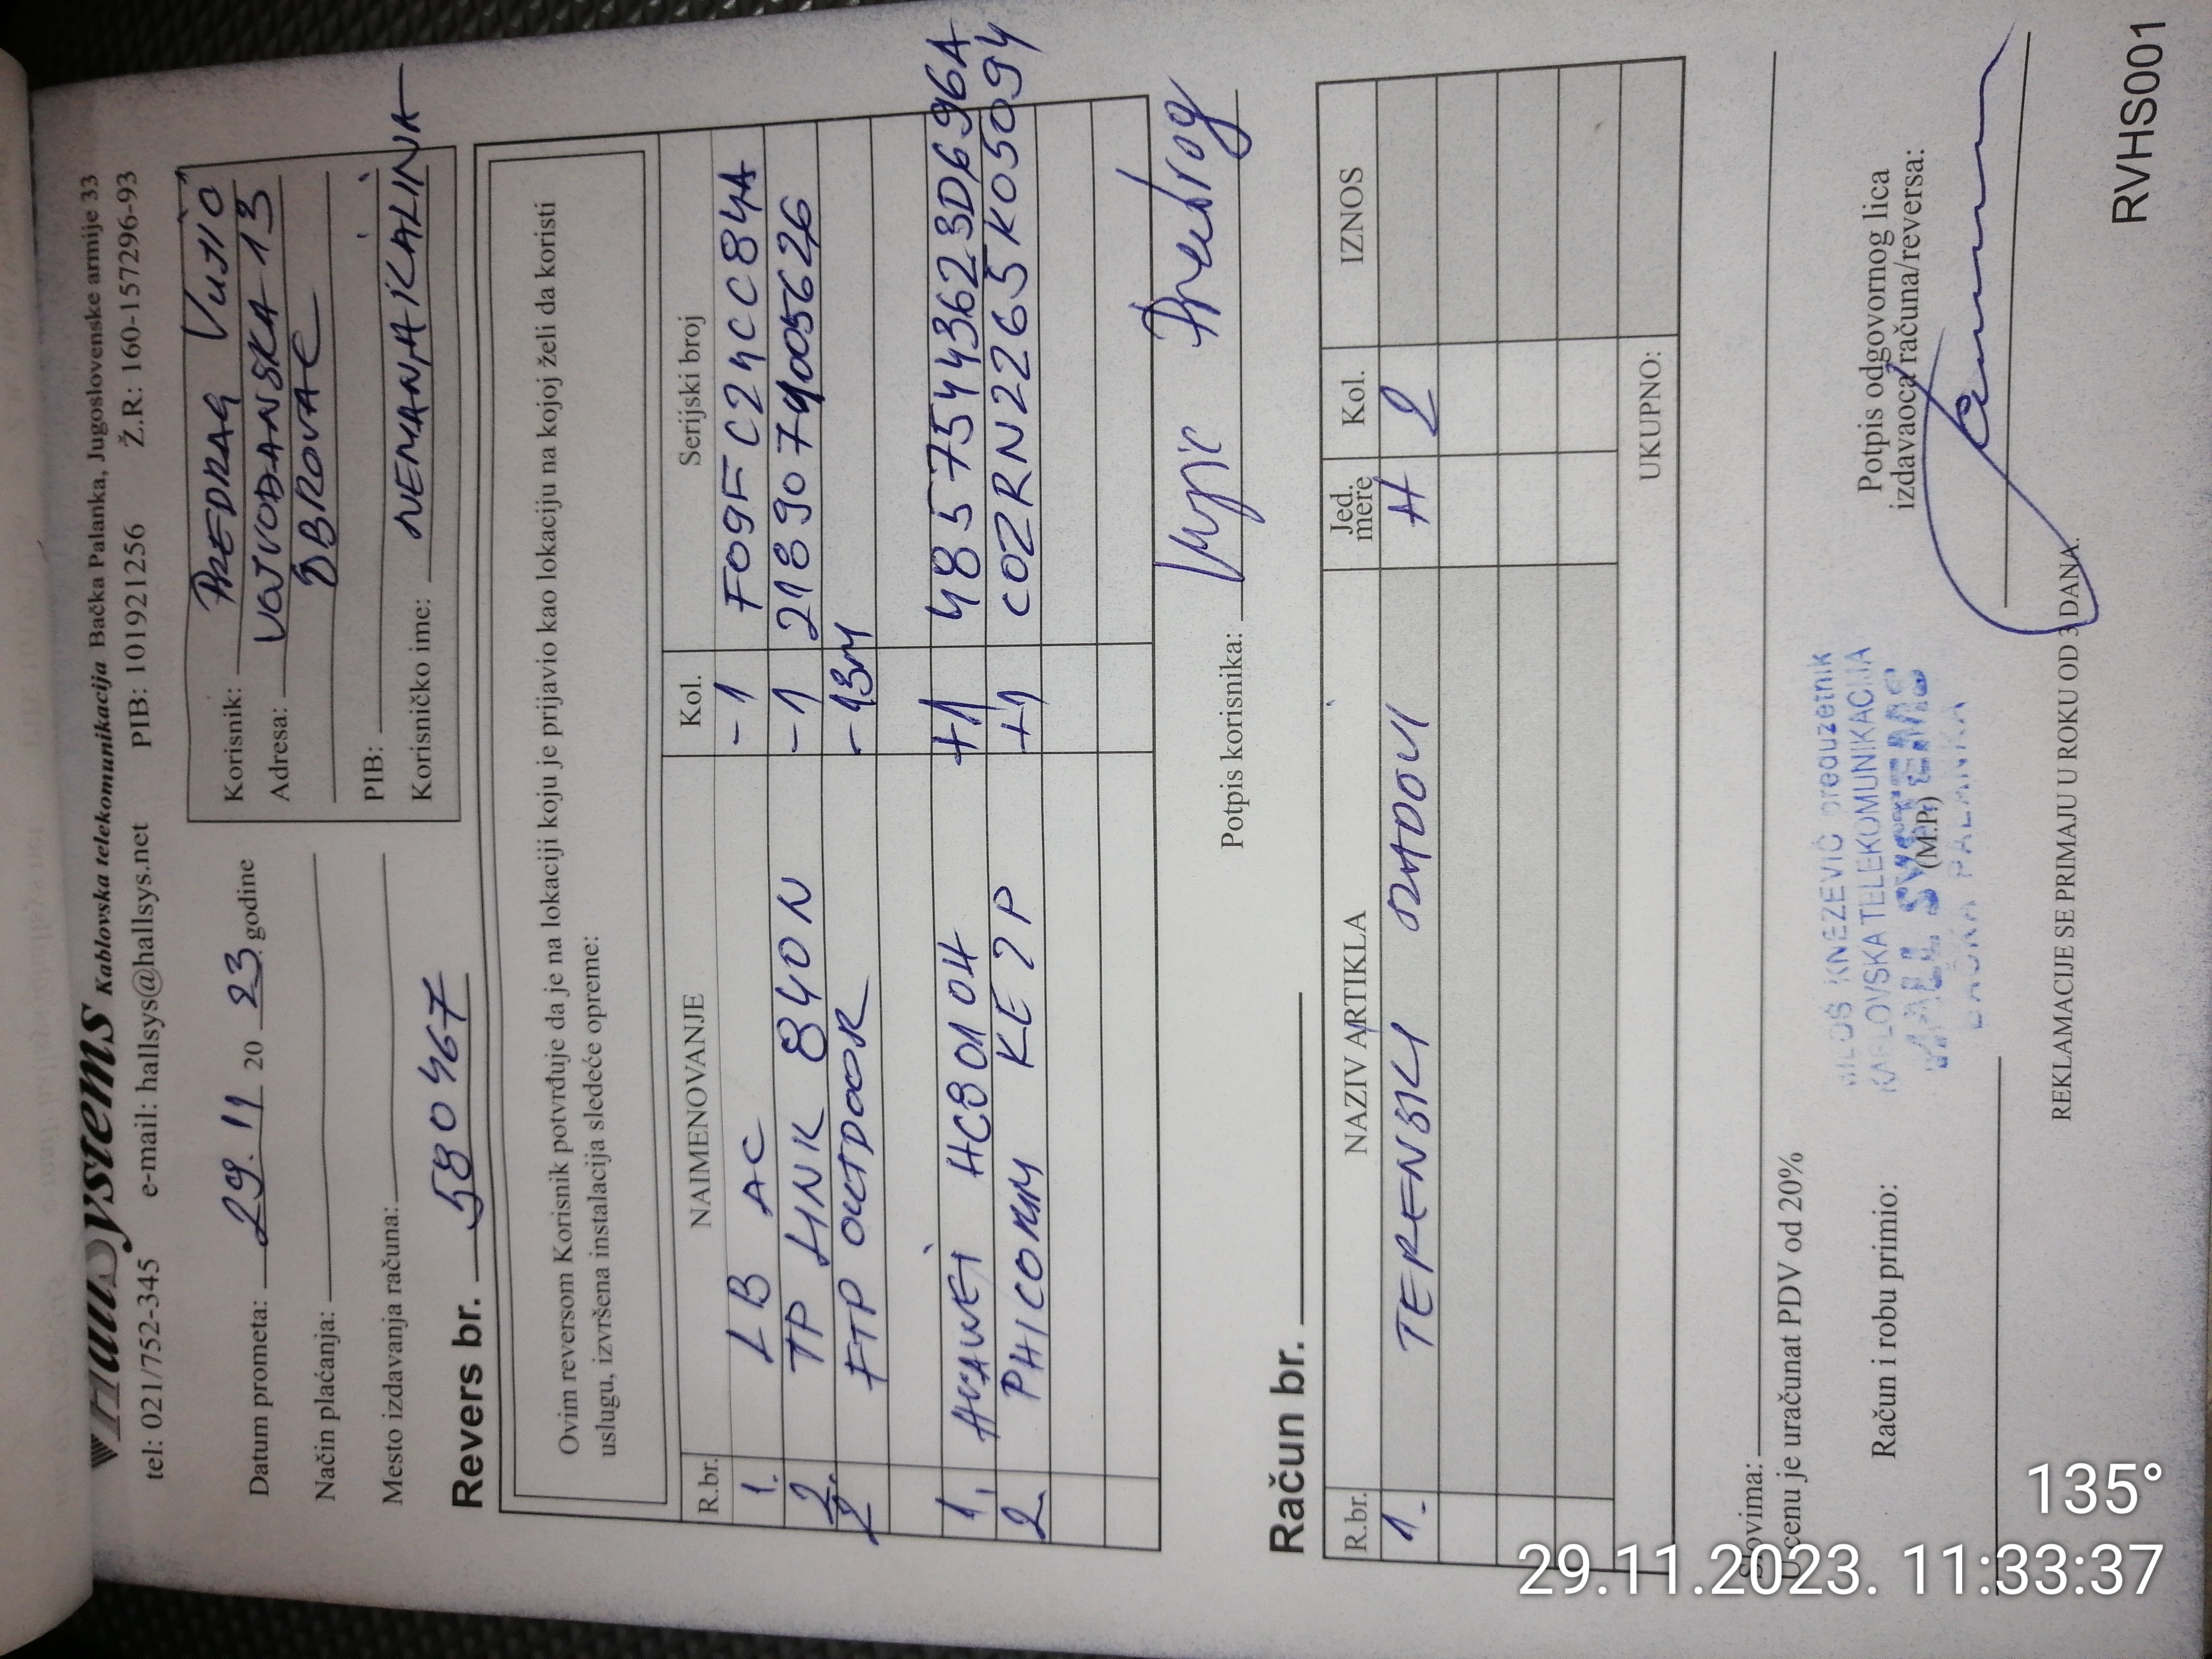 HallSystems Kablovska telekomunikacija Bačka Palanka, Jugoslovenske armije 33
tel: 021/752-345 e-mail: hallsys@hallsys.net PIB: 101921256 Ž.R: 160-157296-93
Datum prometa: 29. 11 20 23. godine
Način plaćanja:
Mesto izdavanja računa:
Korisnik: PREDRAG VUJIĆ
Adresa: VOJVODANSKA 13
OBROVAC
PIB:
Korisničko ime: NEMANJAKALINA
Revers br. 580467
Ovim reversom Korisnik potvrđuje da je na lokaciji koju je prijavio kao lokaciju na kojoj želi da koristi
uslugu, izvršena instalacija sledeće opreme:
R.br. NAIMENOVANJE Kol. Serijski broj
1. LB AC -1 F09FC24CC84A
2. TP LINK 840N -1 2189074005626
FTP OUTDOOR -13M
1. HUAWEI HG8010H +1 48575443623D696A
2. PHICOMM KE 2P +1 COZRN2265K05094
Potpis korisnika: Vujic Predrog
Račun br.
R.br. NAZIV ARTIKLA Jed. mere Kol. IZNOS
1. TERENSKI RADOVI H 2
UKUPNO:
Slovima:
U cenu je uračunat PDV od 20%
Račun i robu primio:
MILOŠ KNEZEVIĆ preduzetnik
KABLOVSKA TELEKOMUNIKACIJA
HALL SYSTEMS
(M.P.)
BAČKA PALANKA
Potpis odgovornog lica
izdavaoca računa/reversa:
REKLAMACIJE SE PRIMAJU U ROKU OD 3 DANA.
RVHS001
135°
29.11.2023. 11:33:37